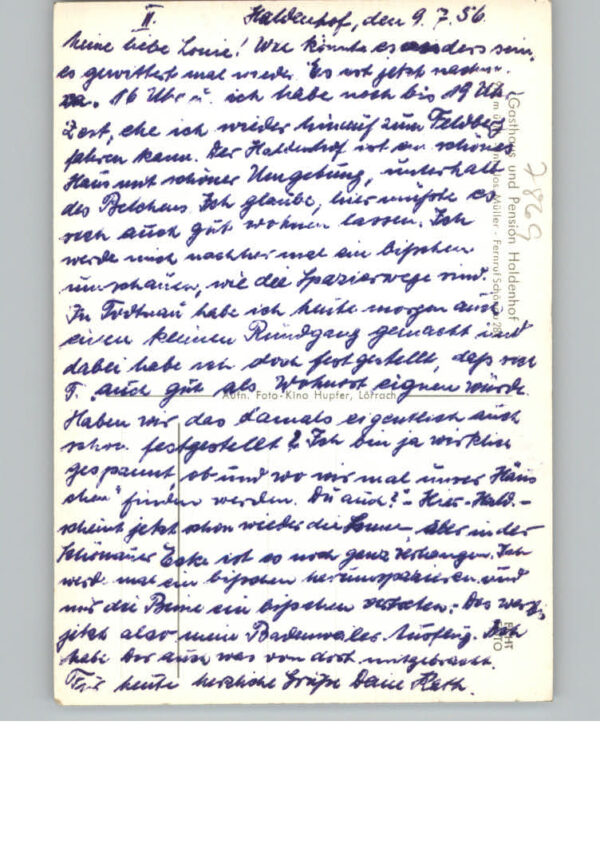 II.
Haldenhof, den 9.7.56.
Meine liebe Louie! Wie könnte es anders sein,
es gewittert mal wieder. Es ist jetzt nachm.
ca. 16 Uhr u. ich habe noch bis 19 Uhr
Zeit, ehe ich wieder hinauf zum Feldberg
fahren kann. Der Haldenhof ist ein schönes
Haus mit schöner Umgebung, unterhalb
des Belchens. Ich glaube, hier müßte es
sich auch gut wohnen lassen. Ich
werde mich nachher mal ein bißchen
umschauen, wie die Spazierwege sind.
In Todtnau habe ich heute morgen auch
einen kleinen Rundgang gemacht und
dabei habe ich doch festgestellt, daß sich
T. auch gut als Wohnort eignen würde.
Haben wir das damals eigentlich auch
schon festgestellt? Ich bin ja wirklich
gespannt ob und wo wir mal unser "Häus
chen" finden werden. Du auch? - Hier - Hald. -
scheint jetzt schon wieder die Sonne, aber in der
Schönauer Ecke ist es noch ganz verhangen. Ich
werde mal ein bißchen herumspazieren und
mir die Beine ein bißchen vertreten. Das
jetzt also mein Badenweiler Ausflug. Ich
habe Dir auch was von dort mitgebracht.
Für heute herzliche Grüße Deine Kath.
Gasthaus und Pension Haldenhof
Müller - Fernruf Schönau 28
Aufn. Foto-Kino Hupfer, Lörrach
7869